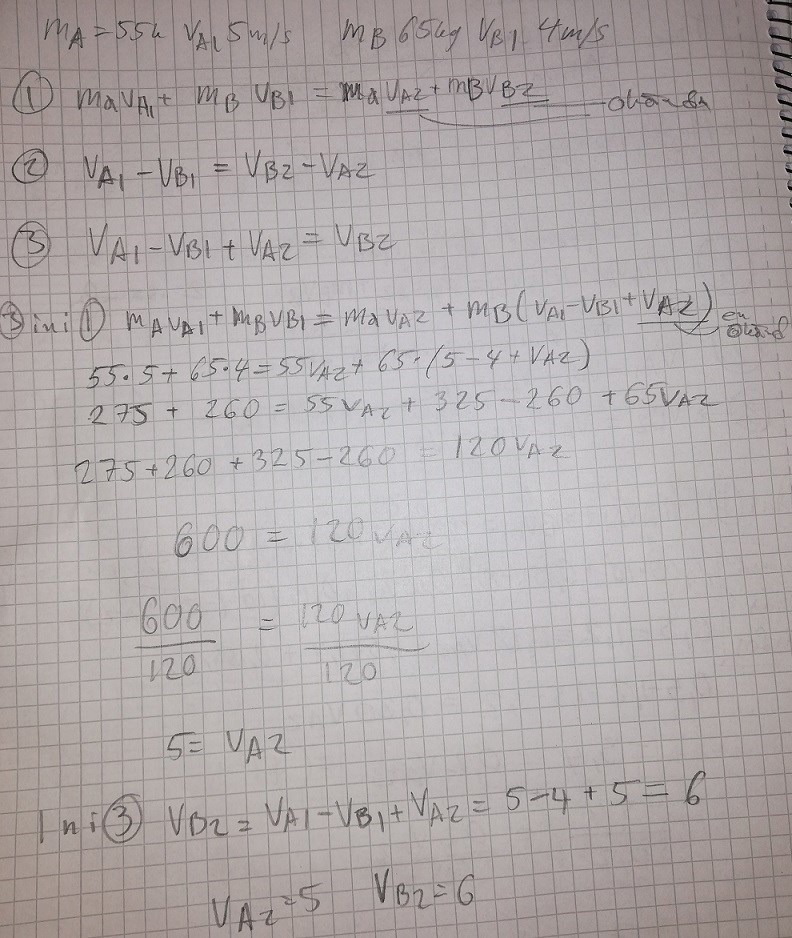 mA = 55k vA1 5m/s mB 65kg vB1 4m/s
① mavA1 + mB vB1 = ma vA2 + mB vB2
② vA1 - vB1 = vB2 - vA2
③ vA1 - vB1 + vA2 = vB2
③ in i ① mA vA1 + mB vB1 = ma vA2 + mB (vA1 - vB1 + vA2) en
55·5 + 65·4 = 55vA2 + 65·(5 - 4 + vA2)
275 + 260 = 55vA2 + 325 - 260 + 65vA2
275 + 260 + 325 - 260 = 120vA2
600 = 120 vA2
600/120 = 120 vA2/120
5 = vA2
In i ③ vB2 = vA1 - vB1 + vA2 = 5 - 4 + 5 = 6
vA2 = 5 vB2 = 6